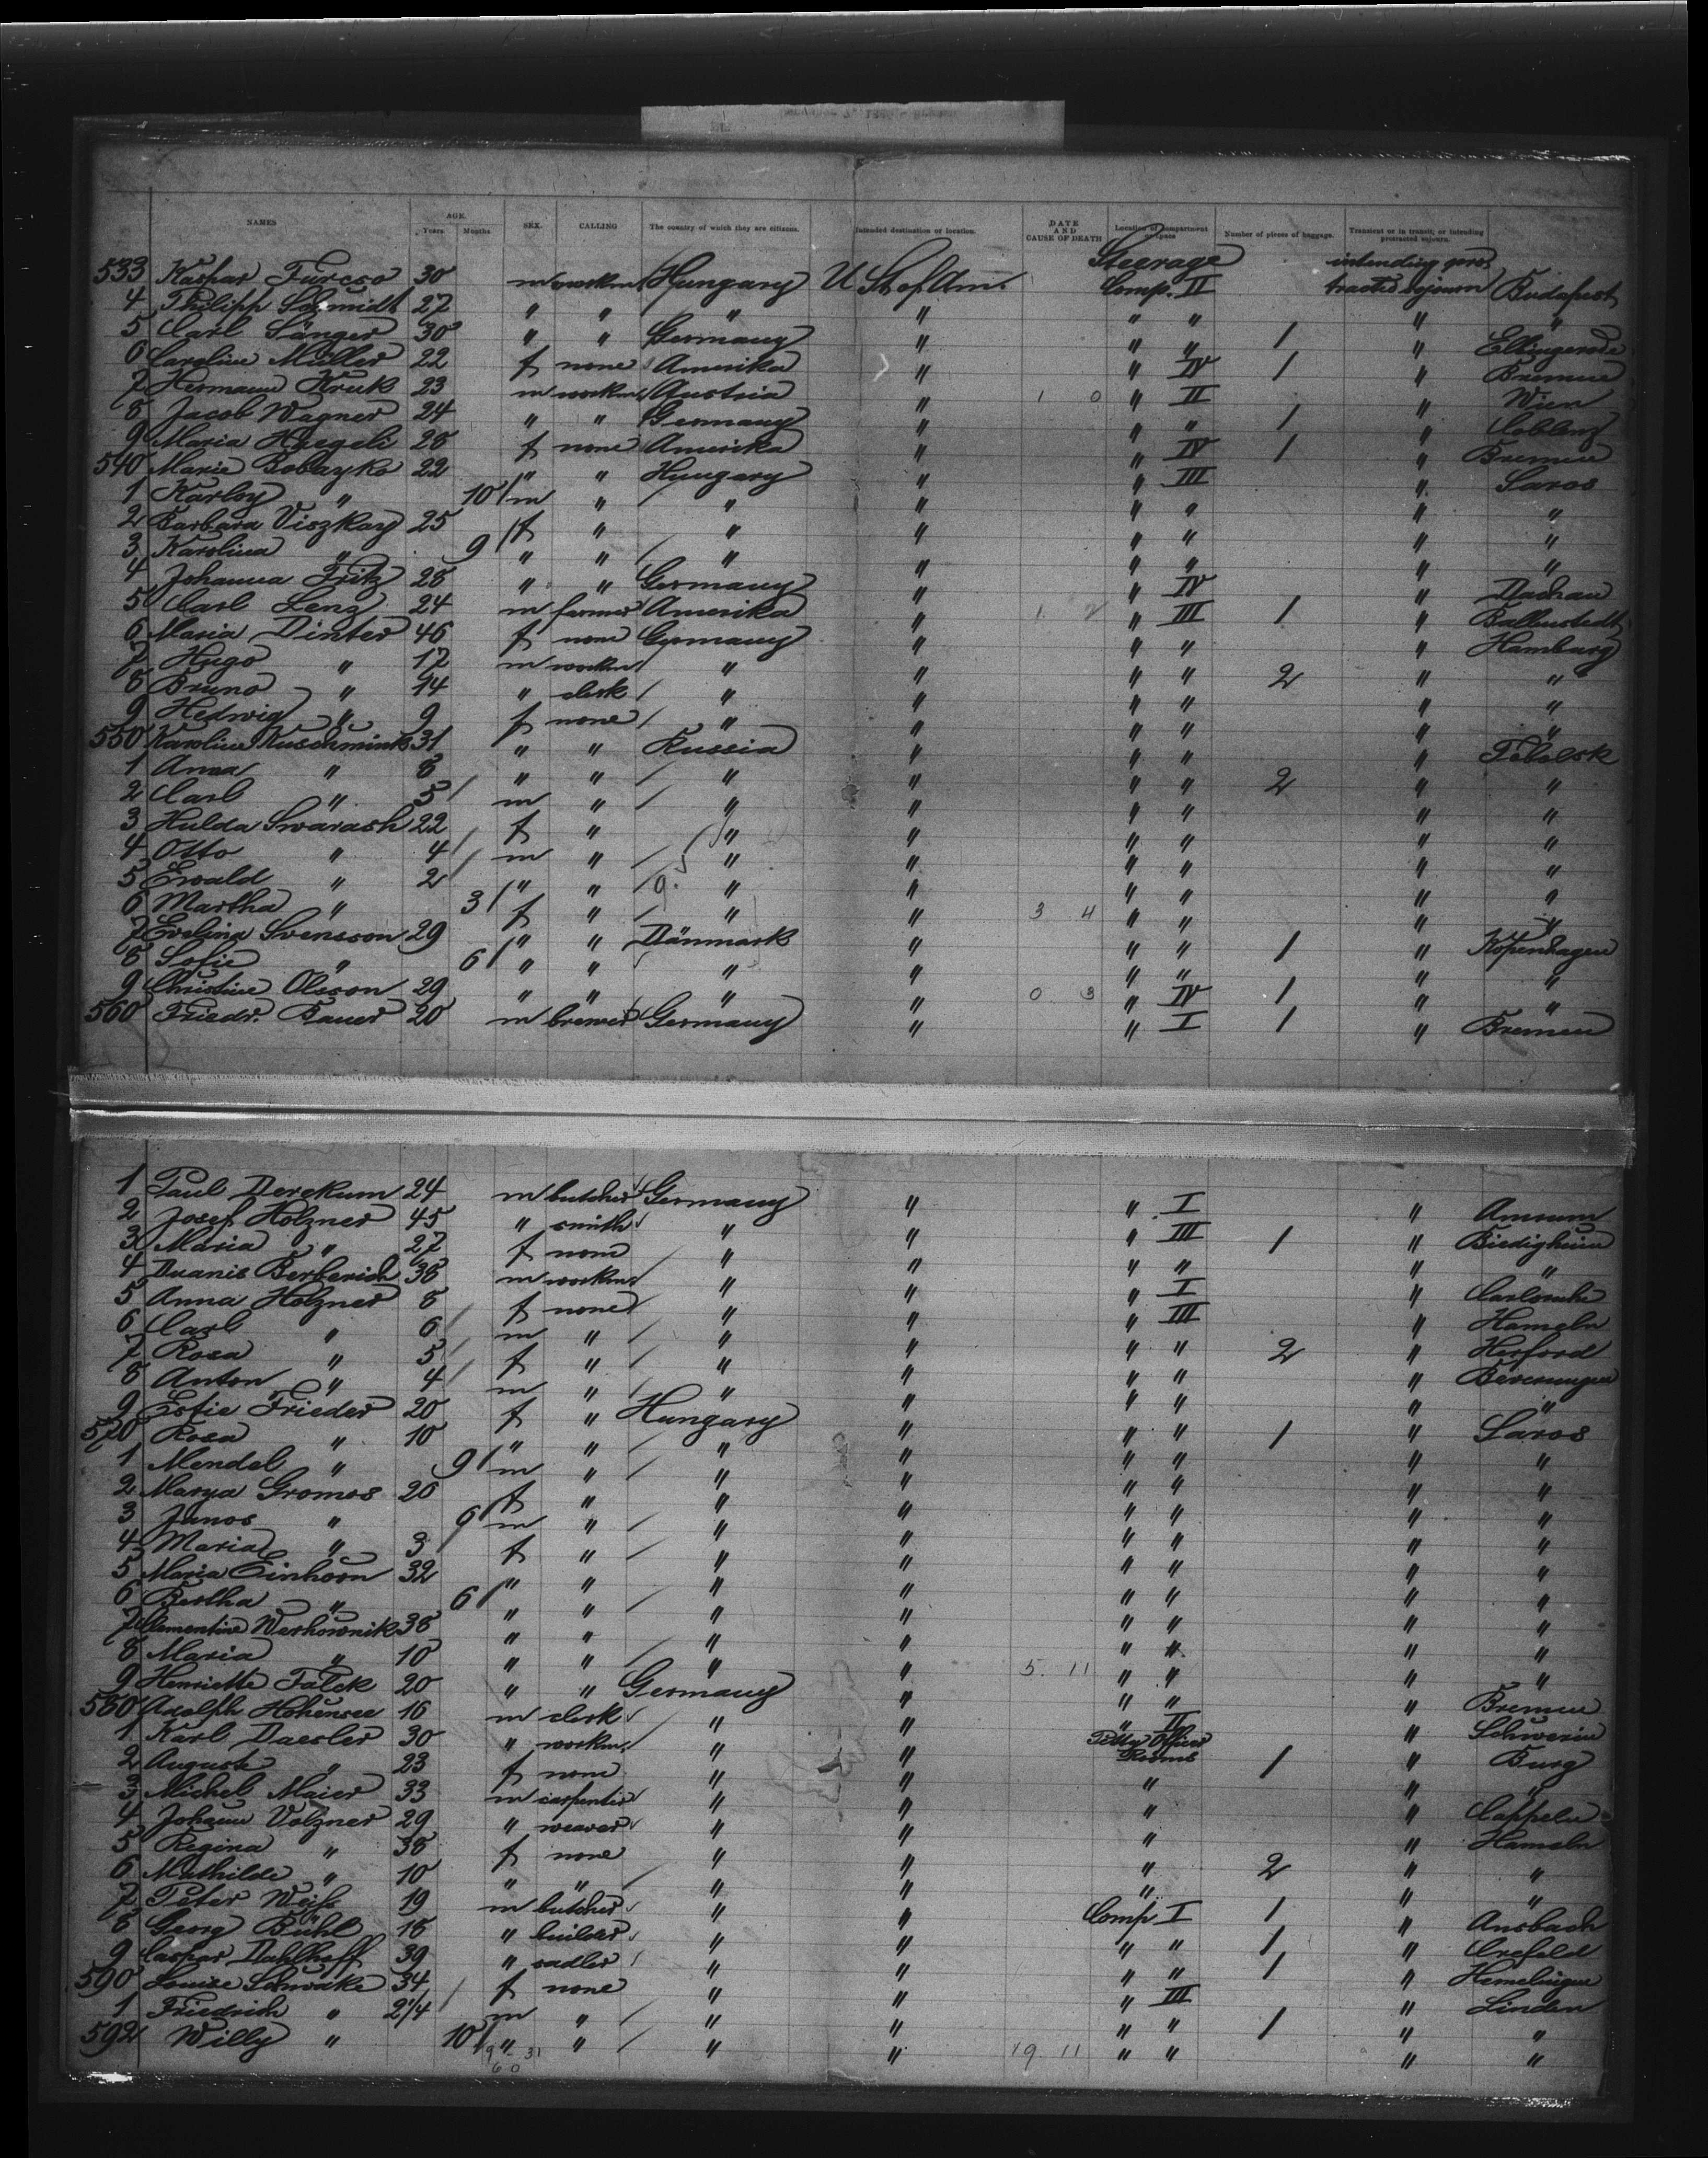 NAMES AGE. Years Months SEX. CALLING The country of which they are citizens. Intended destination or location. DATE AND CAUSE OF DEATH Location of compartment or space Number of pieces of baggage. Transient or in transit, or intending protracted sojourn.
Steerage intending pro-
533 Kaspar Furcso 30 m workm. Hungary U St of Am. Comp. II tracted sojourn Budapest
4 Philipp Schmidt 27 " " " " " " " "
5 Carl Sänger 30 " " Germany " " " 1 " Ellingerode
6 Caroline Müller 22 f none Amerika " " IV 1 " Bremen
7 Hermann Kruk 23 m workm. Austria " 1 0 " II " Wien
8 Jacob Wagner 24 " " Germany " " " 1 " Coblenz
9 Maria Haegeli 28 f none Amerika " " IV 1 " Bremen
540 Marie Bobazyko 22 " " Hungary " " III " Saros
1 Karloy " 10 m " " " " " " "
2 Barbara Viszkay 25 f " " " " " " "
3 Karolina " 9 " " " " " " " "
4 Johanna Fritz 28 " " Germany " " IV " Dachau
5 Carl Lenz 24 m farmer Amerika " 1 " III 1 " Ballenstedt
6 Maria Dinter 46 f none Germany " " " " Hamburg
7 Hugo " 17 m workm " " " " 2 " "
8 Bruno " 14 " clerk " " " " " "
9 Hedwig " 9 f none " " " " " "
550 Karoline Kuschminks 31 " " Russia " " " " Tobolsk
1 Anna " 8 " " " " " " 2 " "
2 Carl " 5 m " " " " " " "
3 Hulda Swarash 22 f " " " " " " "
4 Otto " 4 m " " " " " " "
5 Ewald " 2 " " " " " " " "
6 Martha " 3 f " " " 3 4 " " " "
7 Evelina Svensson 29 " " Dänmark " " " 1 " Kopenhagen
8 Sofie " 6 " " " " " " " "
9 Christine Olsson 29 " " " " 0 3 " IV 1 " "
560 Friedr. Bauer 20 m brewer Germany " " I 1 " Bremen
1 Paul Derckum 24 m butcher Germany " " I " Amrum
2 Josef Holzner 45 " smith " " " III 1 " Biedigheim
3 Maria " 27 f none " " " " " "
4 Berberich 38 m workm " " " I " Carlsruhe
5 Anna Holzner 8 f none " " " III " Hameln
6 Carl " 6 m " " " " " 2 " Herford
7 Rosa " 5 f " " " " " " Beverungen
8 Anton " 4 m " " " " " " "
9 Estie Frieder 20 f " Hungary " " " 1 " Saros
570 Rosa " 10 " " " " " " " "
1 Mendel " 9 m " " " " " " "
2 Marya Gromos 20 f " " " " " " "
3 Janos " 6 m " " " " " " "
4 Maria " 3 f " " " " " " "
5 Maria Einhorn 32 " " " " " " " "
6 Bertha " 6 " " " " " " " "
7 Clementine Werhownik 38 " " " " " " " "
8 Maria " 10 " " " " 5 11 " " " "
9 Henriette Falck 20 " " Germany " " " " Bremen
580 Adolph Hohensee 16 m clerk " " " II " Schwerin
1 Karl Daesler 30 " workm. " " Petty Officers Rooms 1 " Burg
2 Auguste " 23 f none " " " " "
3 Michel Maier 33 m carpenter " " " " Cappeln
4 Johann Volzner 29 " weaver " " " " Hameln
5 Regina " 38 f none " " " 2 " "
6 Mathilde " 10 " " " " " " "
7 Peter Weiß 19 m butcher " " Comp I 1 " Ansbach
8 Georg Bühl 18 " builder " " " " 1 " Crefeld
9 Caspar Dahlhoff 39 " sadler " " " " 1 " Hemelingen
590 Louise Schwake 34 f none " " " III " Linden
1 Friedrich " 2 1/4 m " " " " " 1 " "
592 Willy " 10 " " " " 19 11 " " " "
9 31
6 0